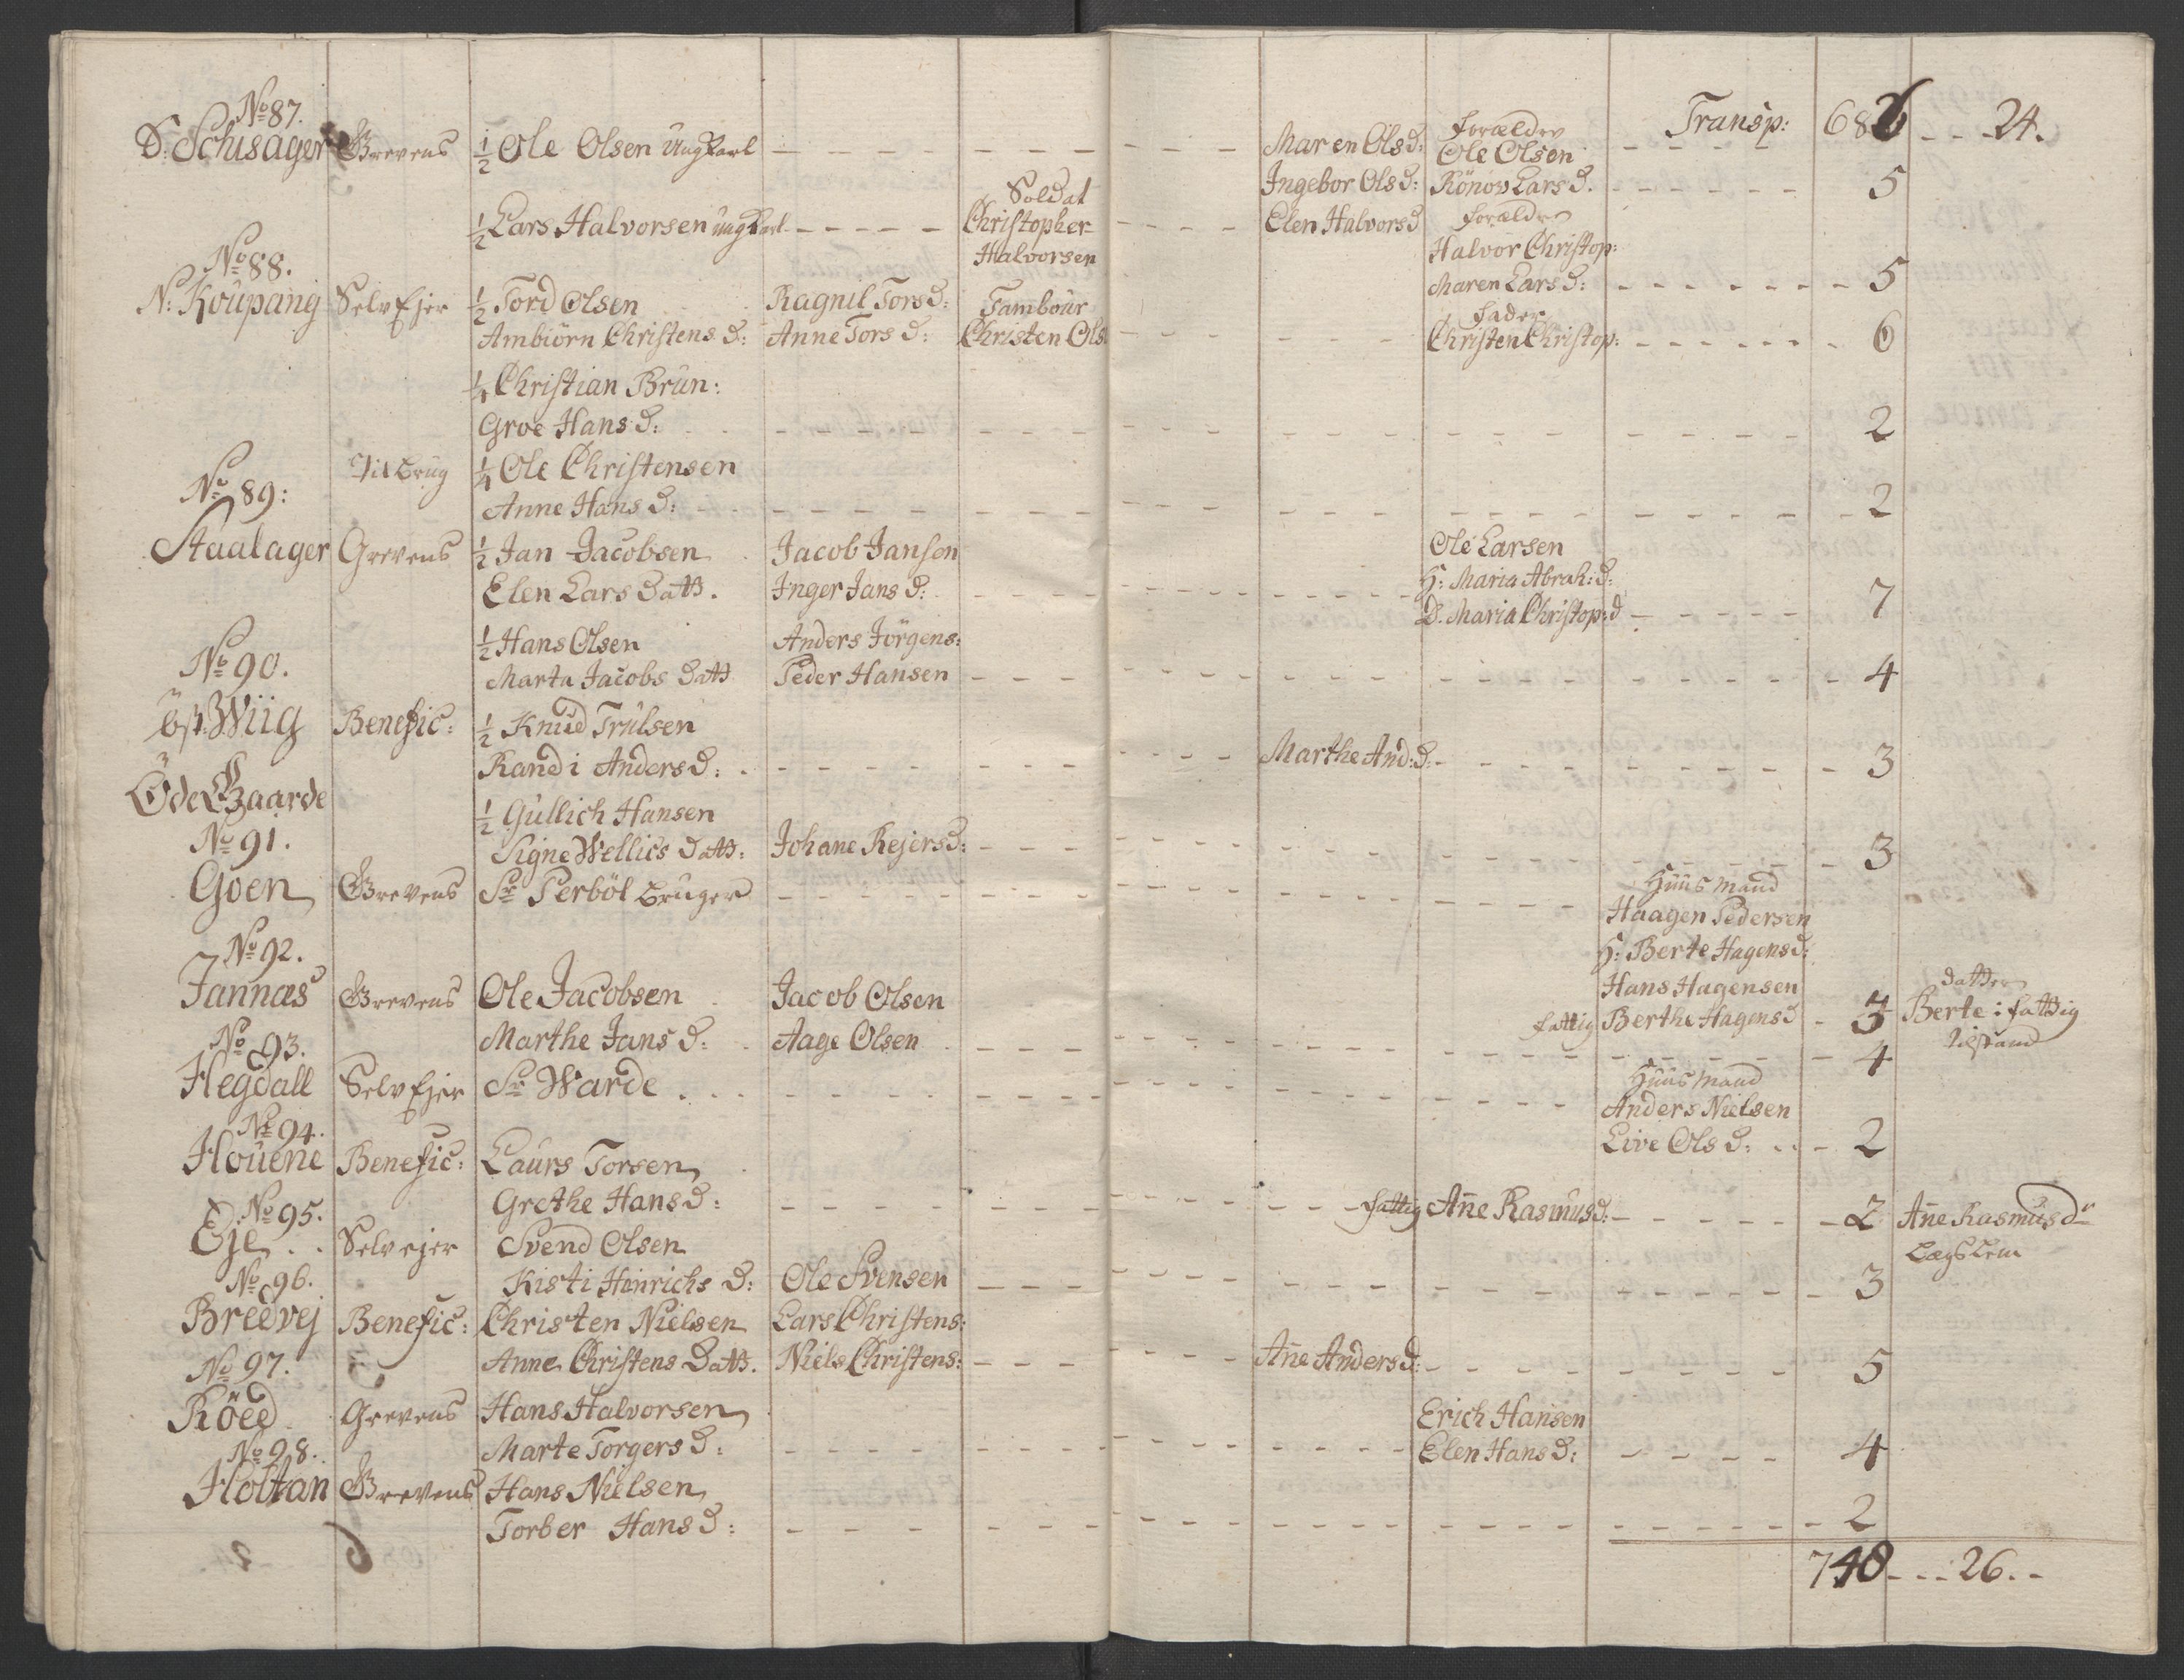 No 87. Transp: 686 - - - 24.
S: Schisager Grevens ½ Ole Olsen Ung Karl Maren Ols d: Forældre
Ole Olsen
Ingebor Ols d: Rönov Lars d. 5
½ Lars Halvorsen Ung Karl Soldat Elen Halvors d Forældre
Christopher Halvor Christop:
Halvorsen Maren Lars d: 5
No 88.
N: Koupang Selv Ejer ½ Tord Olsen Ragnil Tors d: Tambour Fader
Ambiörn Christens d: Anne Tors d: Christen Ols: Christen Christop: 6
¼ Christian Brun:
Groe Hans d: 2
Til Brug ¼ Ole Christensen
Anne Hans d: 2
No 89:
Staalager Grevens ½ Jan Jacobsen Jacob Jansen Ole Larsen
Elen Lars Datt. Inger Jans d: H: Maria Abrah: d:
D. Maria Christop: d 7
½ Hans Olsen Anders Jörgens:
Marta Jacobs Datt Peder Hansen 4
No 90.
öst: Wiig Benefic: ½ Knud Trulsen
Randi Anders d: Marthe And: d: 3
Öde Gaarde
½ Gullich Hansen
Signe Wellics Datt: Johane Rejers d: 3
No 91.
Goen Grevens Sr Perböl Bruger Huus Mand
Haagen Pedersen
H: Berte Hagens d:
Hans Hagensen
fattig Berthe Hagens d 3 datter
Berte i fattig
tilstand
No 92.
Jannæs Grevens Ole Jacobsen Jacob Olsen
Marthe Jans d: Aage Olsen 4
No 93.
Hegdall Selv Ejer Sr Warde Huus Mand
Anders Nielsen
Live Ols d: 2
No 94.
Houene Benefic: Laurs Torsen
Grethe Hans d: fattig Añe Rasmus d: 2 Añe Rasmus dr
Lægs Lem
No 95.
Eje Selv ejer Svend Olsen
Kisti Hinrichs d: Ole Svensen 3
No 96.
Bredvej Benefic: Christen Nielsen Lars Christens:
Anne Christens Datt. Niels Christens: Añe Anders d: 5
No 97.
Röed Grevens Hans Halvorsen Erich Hansen
Marte Torgers d: Elen Hans d: 4
No 98.
Holtan Grevens Hans Nielsen
Torber Hans d: 2
740 - - - 26. -